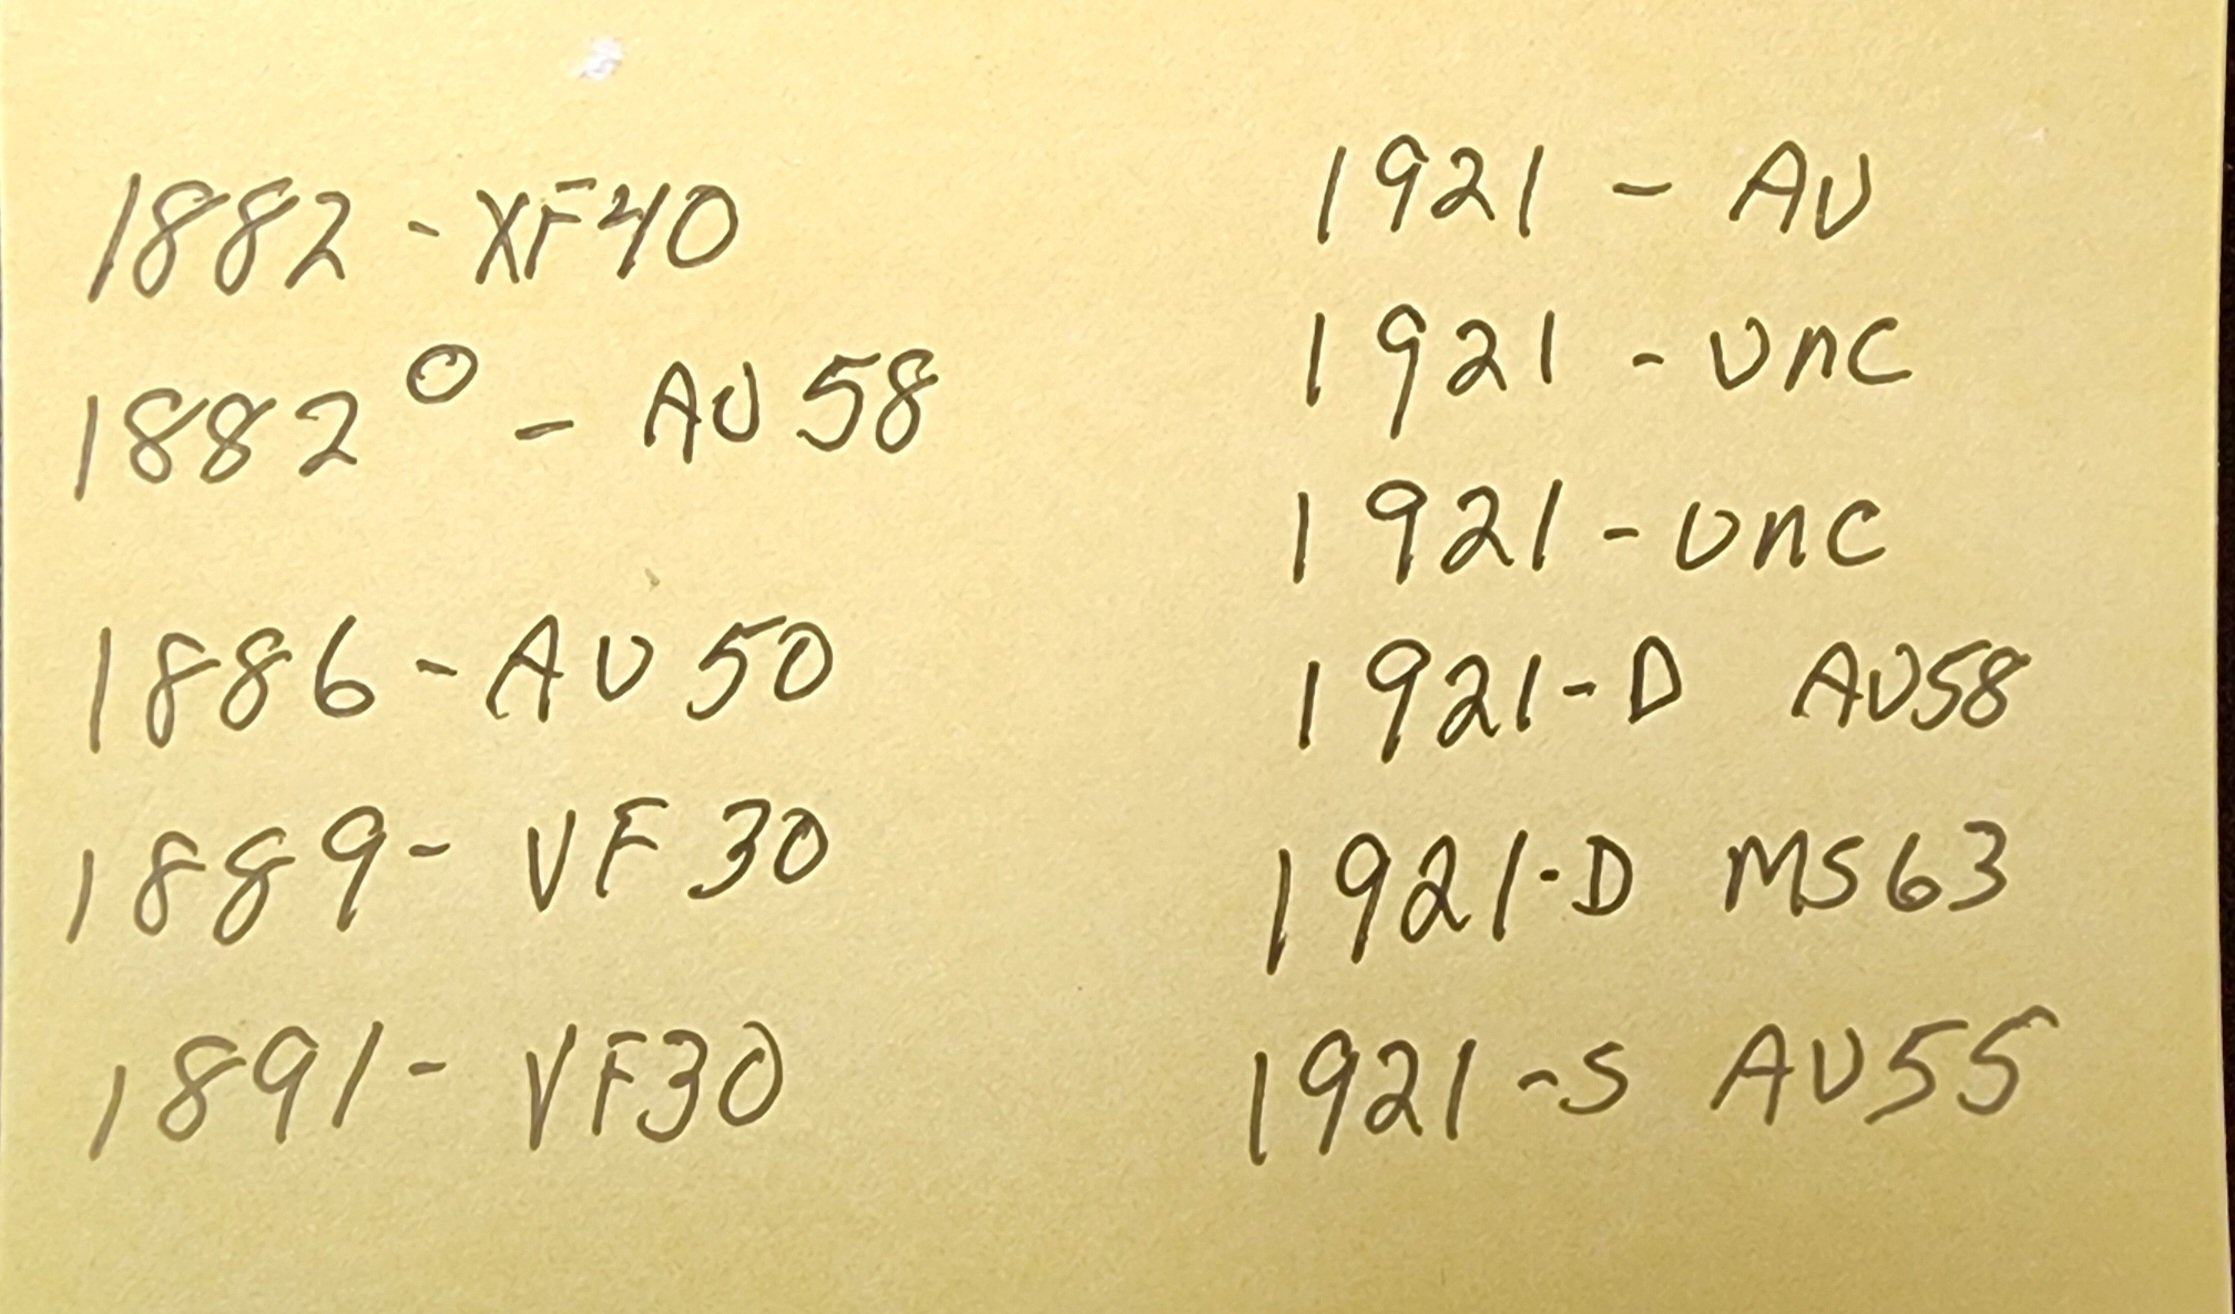 1882 - XF40
1882 O - AU 58
1886 - AU 50
1889 - VF 30
1891 - VF30
1921 - AU
1921 - UNC
1921 - UNC
1921 - D AU58
1921 - D MS63
1921 - S AU55